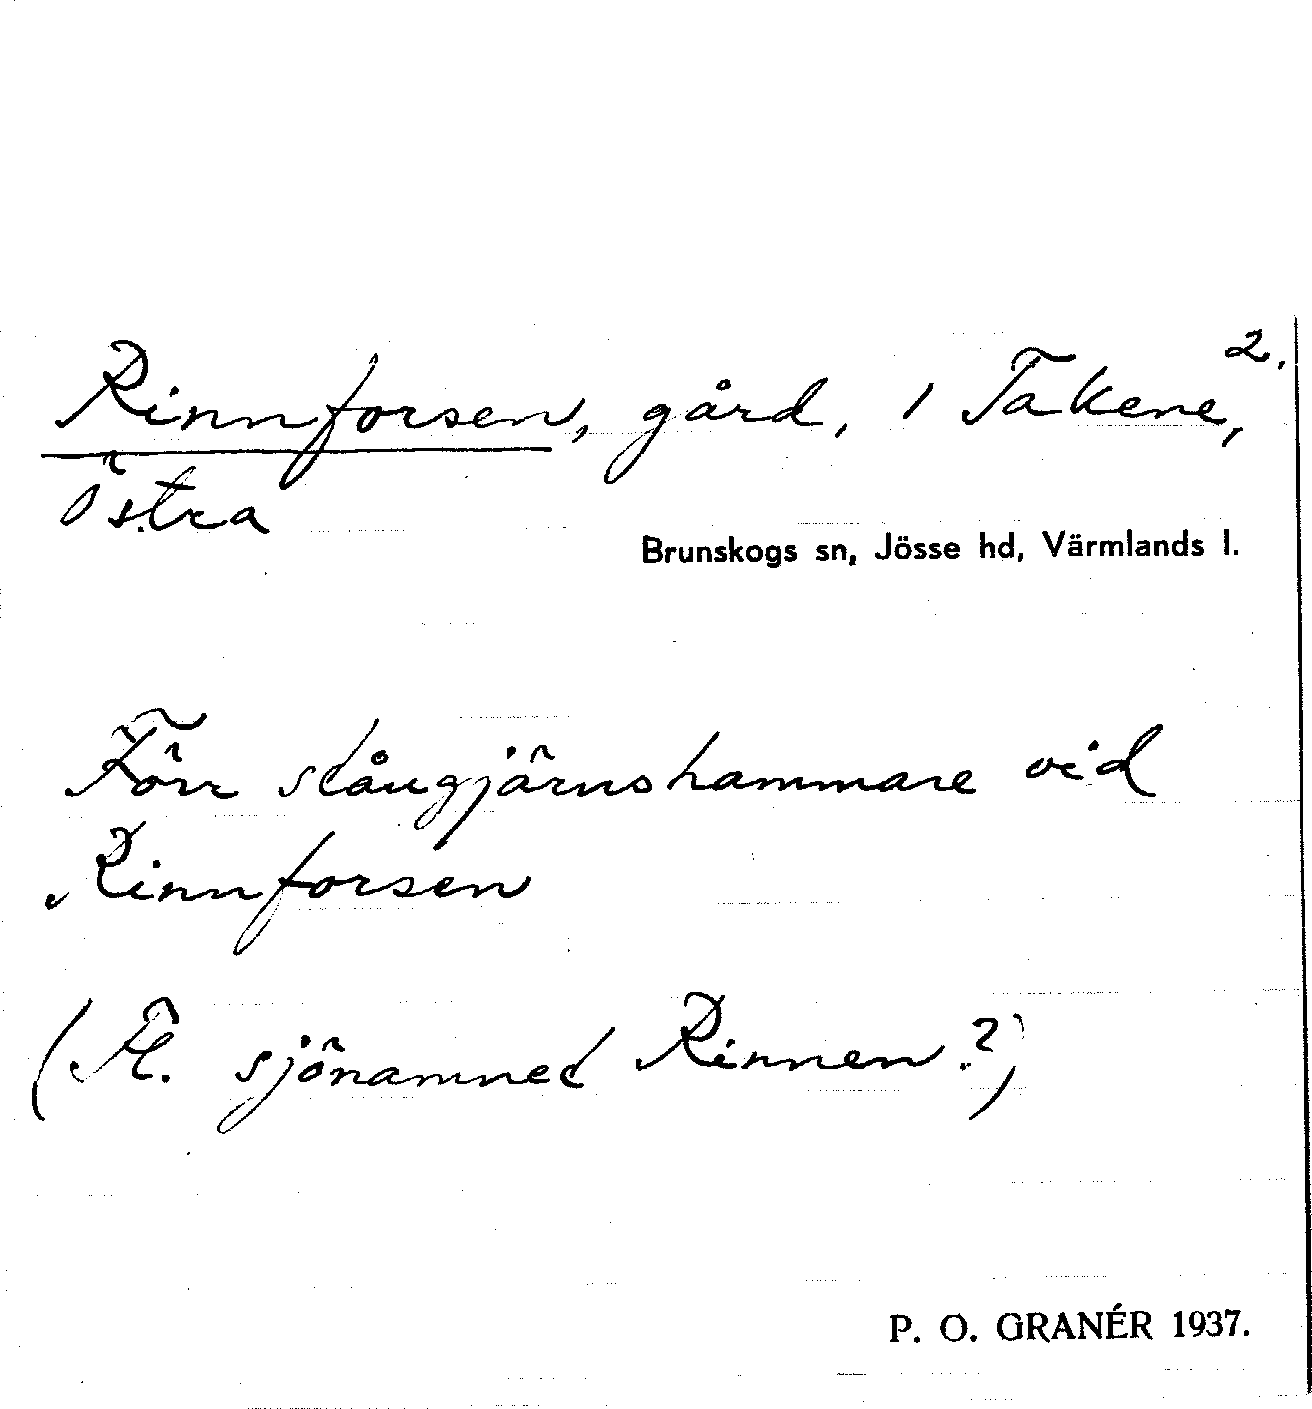 2.
Rinnforsen, gård, i Takene,
Östra
Brunskogs sn, Jösse hd, Värmlands l.
Förr stångjärnshammare vid
Rinnforsen
(Ä. sjönamnet Rinnen?)
P. O. GRANÉR 1937.